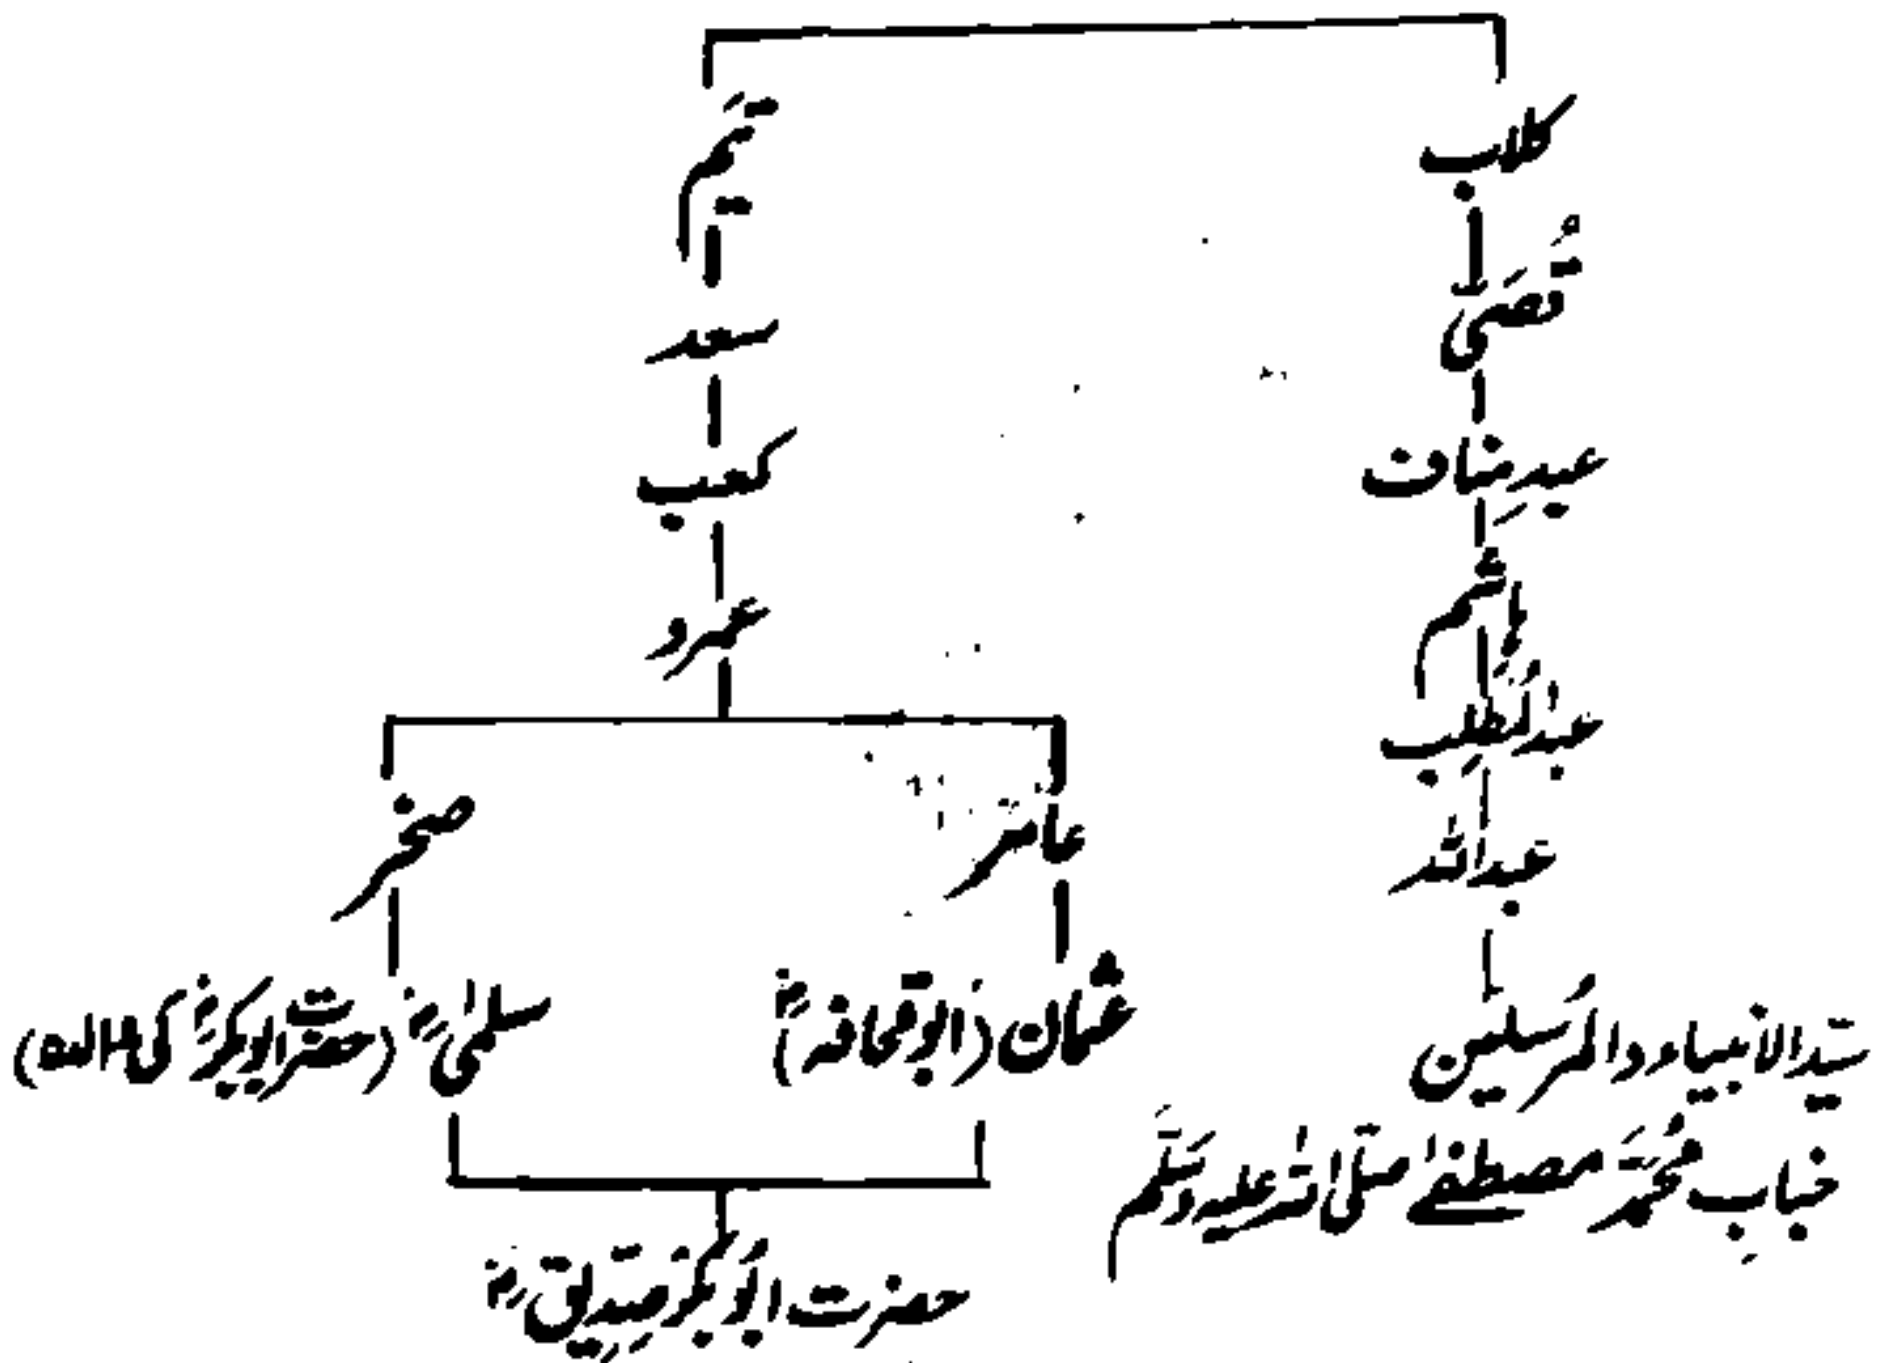 کلاب
قُصَیّ
عبدِ مناف
ہاشم
عبدُالمُطّلِب
عبداللہ
سیّدالانبیاء والمُرسَلین
جنابِ مُحَمَّد مصطفےٰ صلّی اللہ علیہ وسَلّم
تَیم
سعد
کعب
عمرو
عامر
عثمان (ابو قحافہؓ)
صخر
سلمٰیؓ (حضرت ابوبکرؓ کی والدہ)
حضرت ابُوبکر صِدّیقؓ